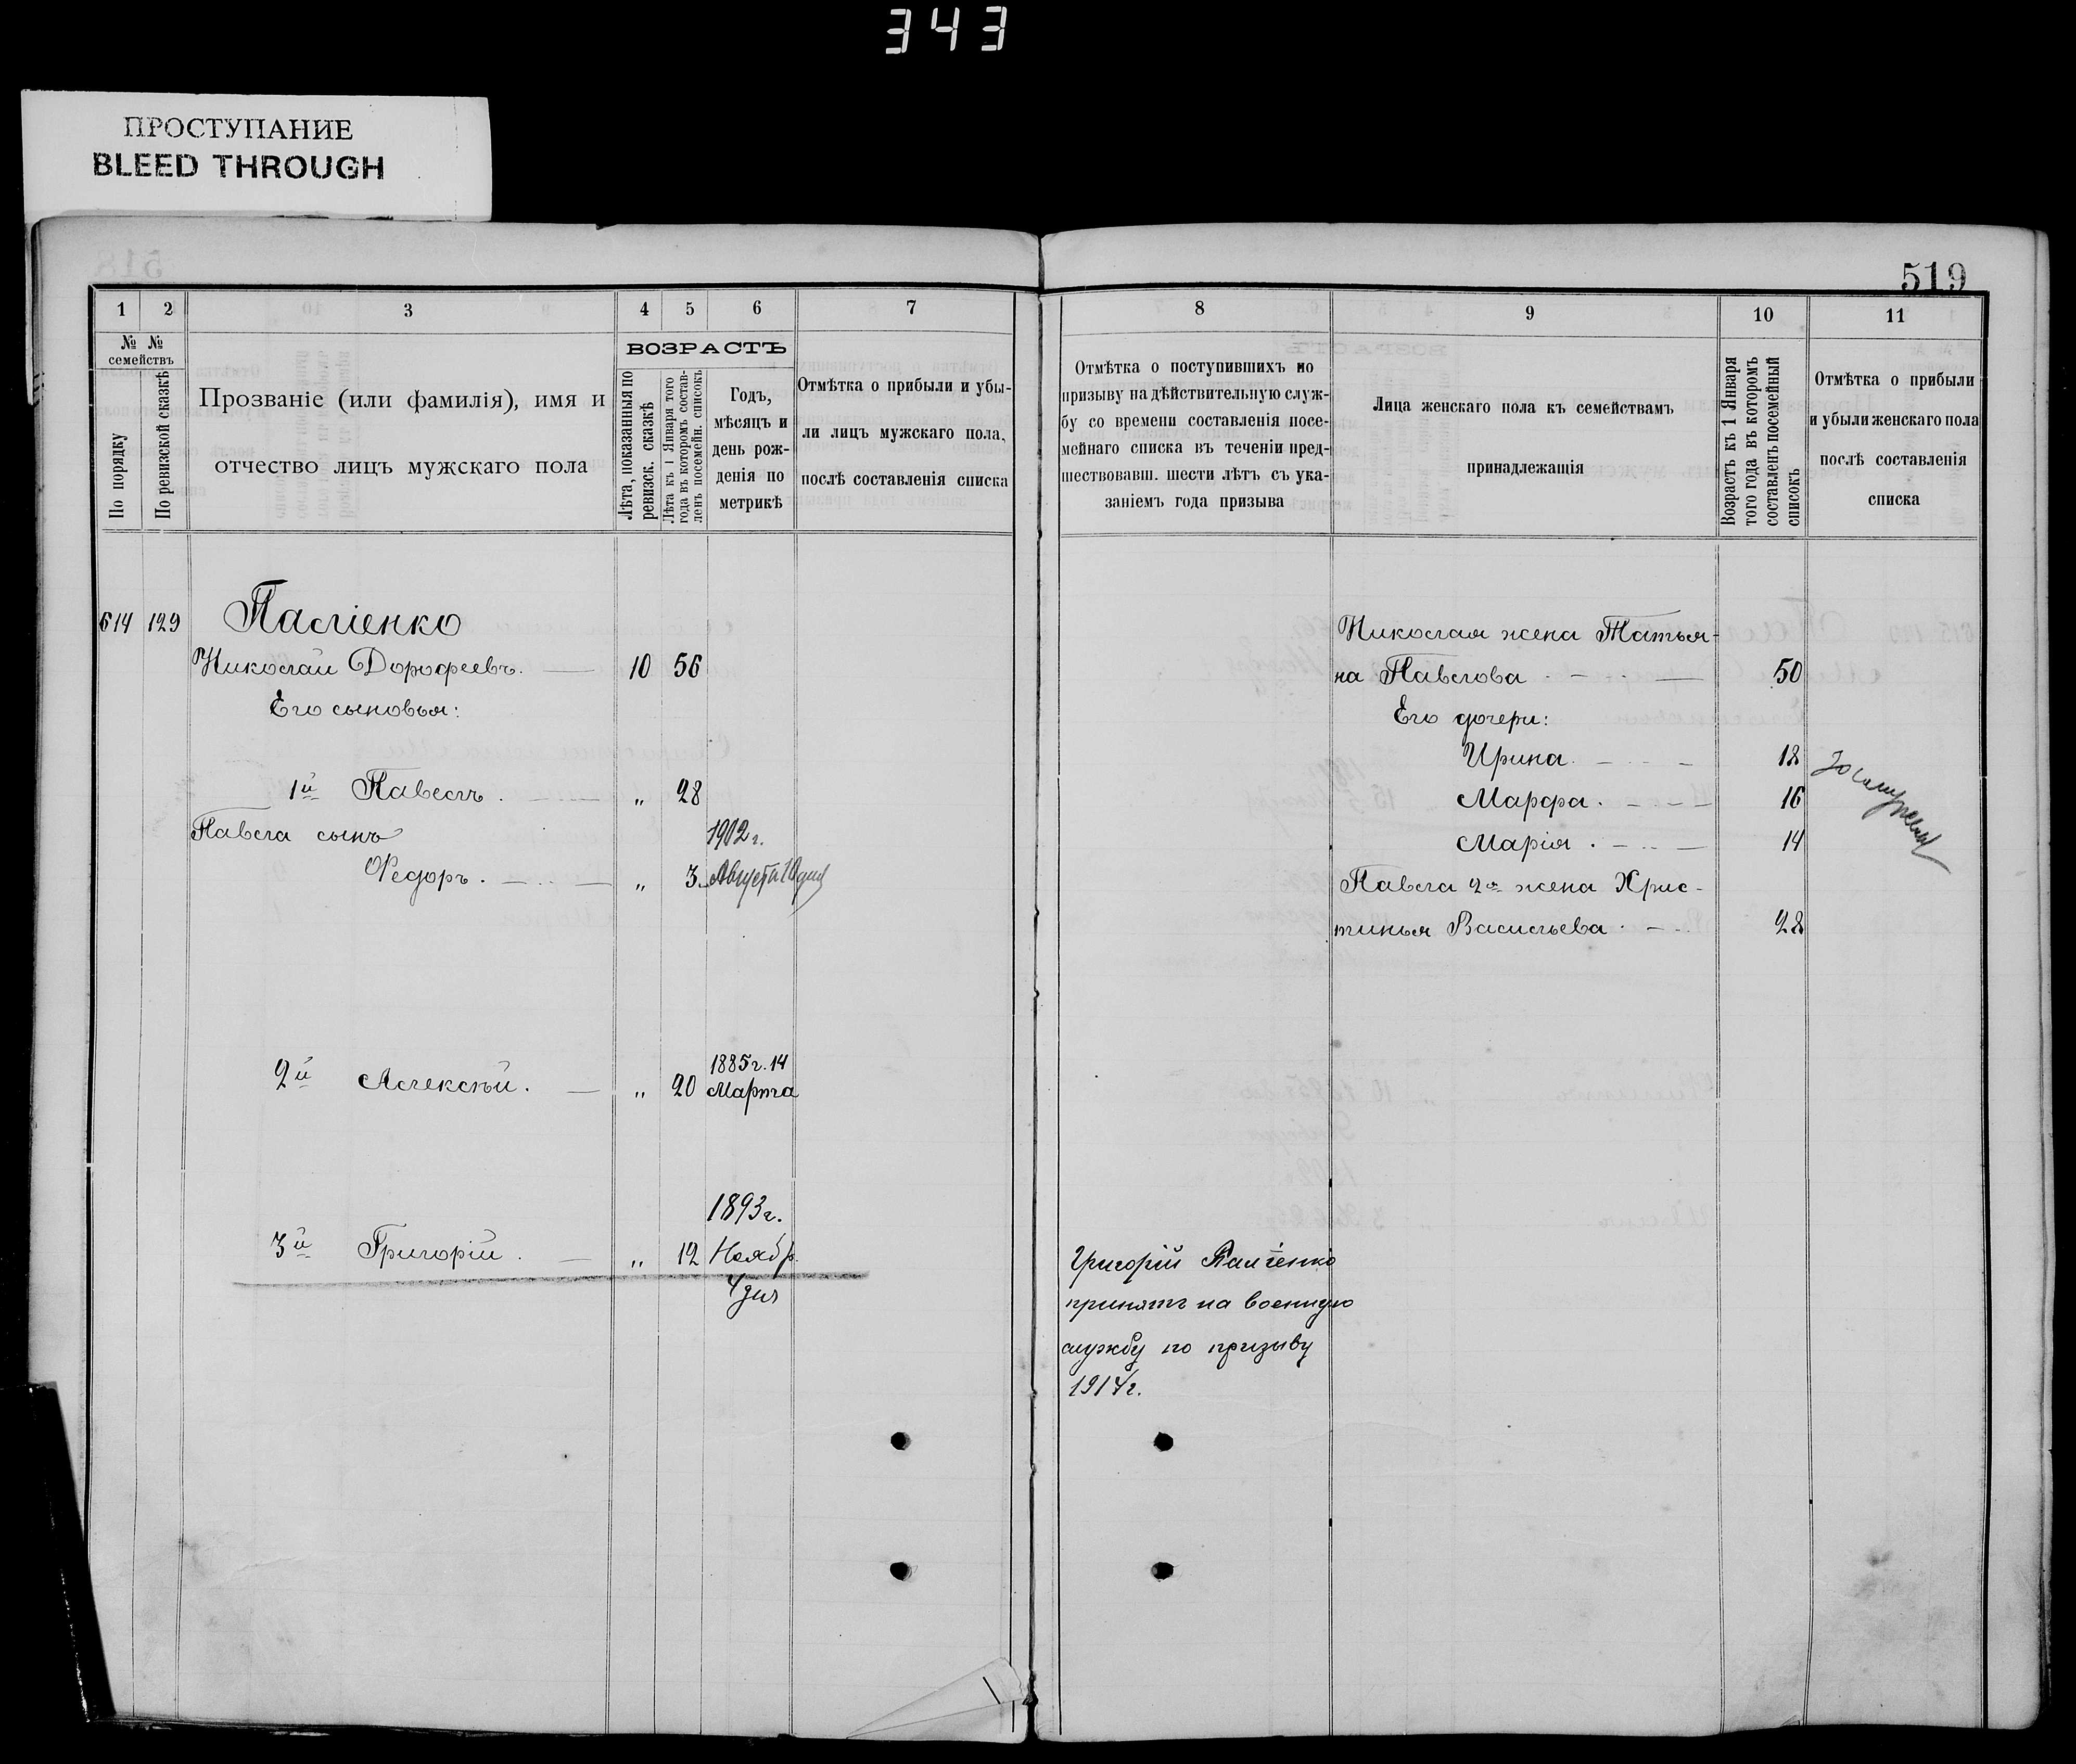 343
ПРОСТУПАНИЕ
BLEED THROUGH
519
1 2 3 4 5 6 7
№ № семействъ
По порядку
По ревизской сказкѣ
Прозваніе (или фамилія), имя и
отчество лицъ мужскаго пола
ВОЗРАСТЪ
Лѣта, показанныя по
ревизск. сказкѣ
Лѣта къ 1 Января того
года въ которомъ состав-
ленъ посемейн. списокъ
Годъ,
мѣсяцъ и
день рож-
денія по
метрикѣ
Отмѣтка о прибыли и убы-
ли лицъ мужскаго пола,
послѣ составленія списка
614 129 Палгіенко
Николай Дорофеевъ. 10 56
Его сыновья:
1й Павелъ. " 28
Павла сынъ
1902 г.
Федоръ. " 3 Августа 10 дня
1885 г. 14
2й Алексѣй. " 20 Марта
1893 г.
3й Григорій. " 12 Ноябр.
4 дня
8 9 10 11
Отмѣтка о поступившихъ по
призыву на дѣйствительную служ-
бу со времени составленія посе-
мейнаго списка въ теченіи пред-
шествовавш. шести лѣтъ съ ука-
заніемъ года призыва
Лица женскаго пола къ семействамъ
принадлежащія
Возрастъ къ 1 Января
того года въ которомъ
составленъ посемейный
списокъ
Отмѣтка о прибыли
и убыли женскаго пола
послѣ составленія
списка
Николая жена Татья-
на Павлова 50
Его дочери:
Ирина. 18
Марфа. 16
Марія. 14
Павла 2я жена Хрис-
тинья Васильева. 28
Григорій Палгіенко
принятъ на военную
службу по призыву
1914 г.